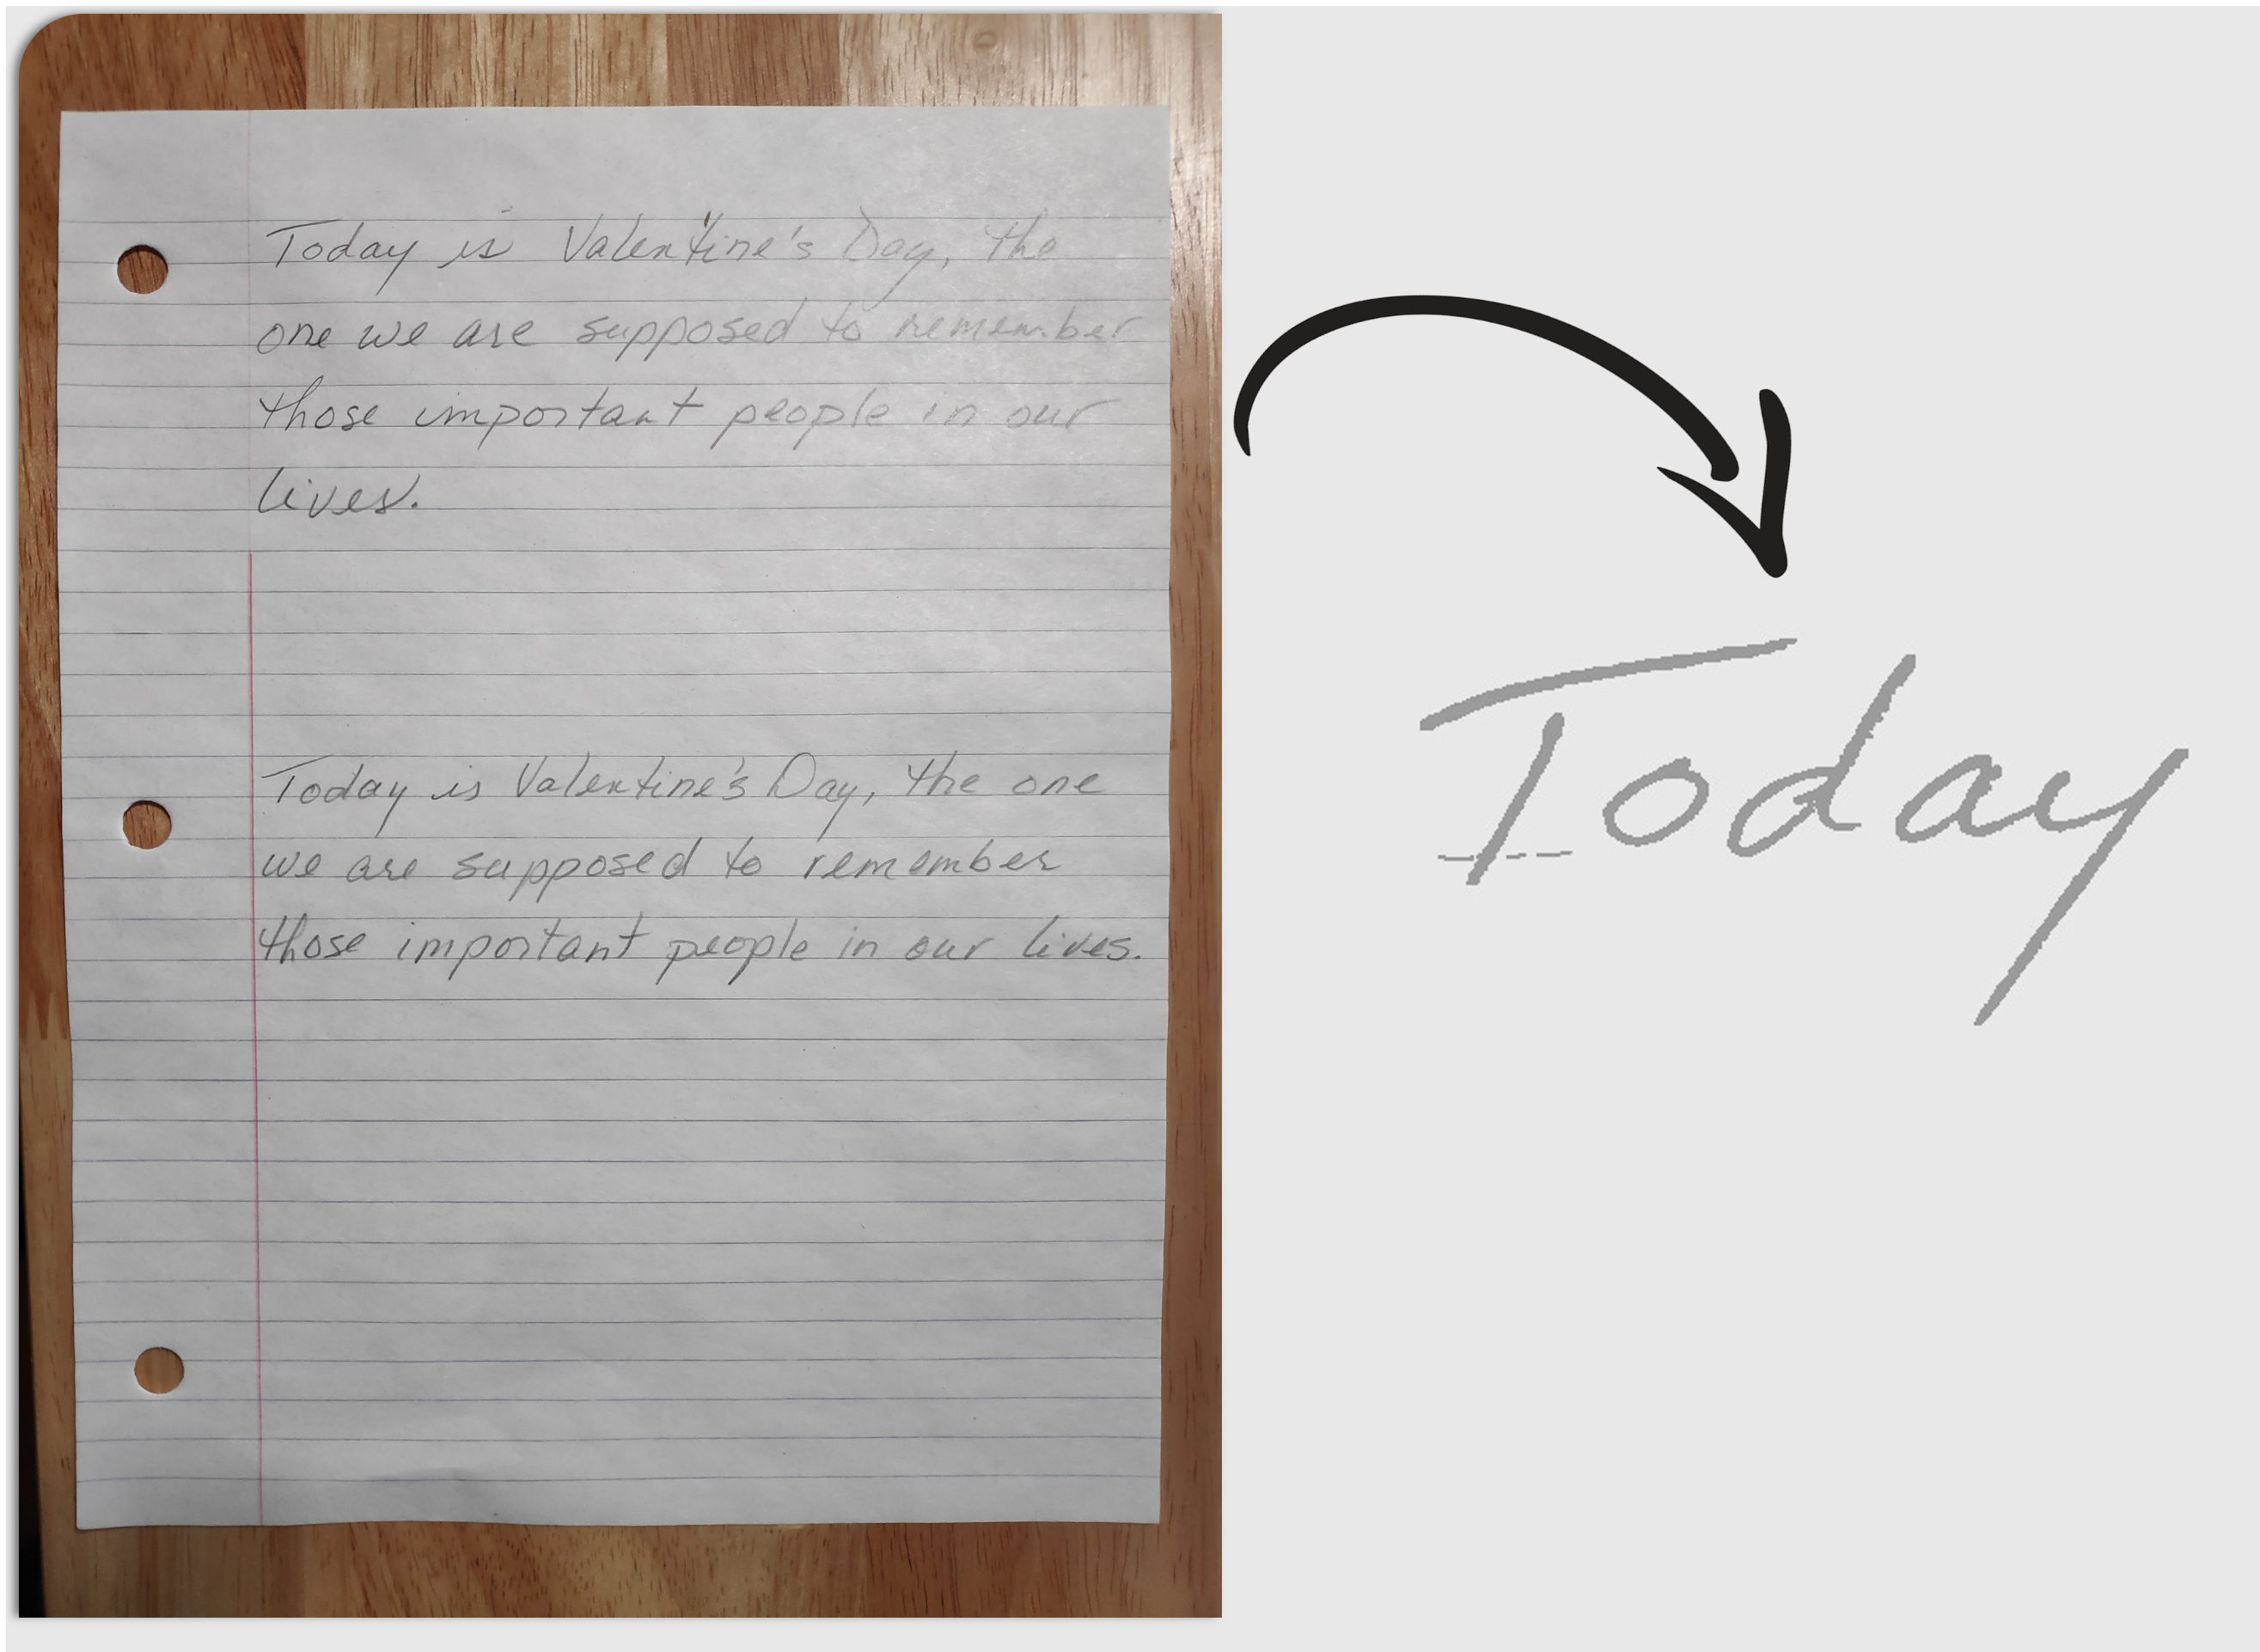 Today is Valentine's Day, the
one we are supposed to remember
those important people in our
lives.
Today is Valentine's Day, the one
we are supposed to remember
those important people in our lives.
Today